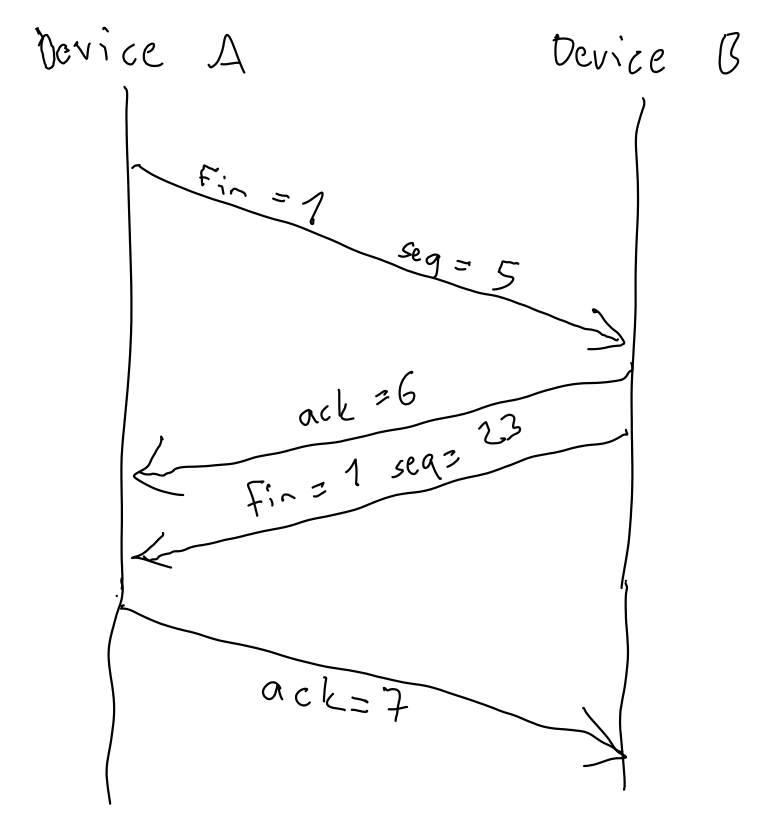 Device A
Device B
Fin = 1
seq = 5
ack = 6
Fin = 1 seq = 23
ack = 7